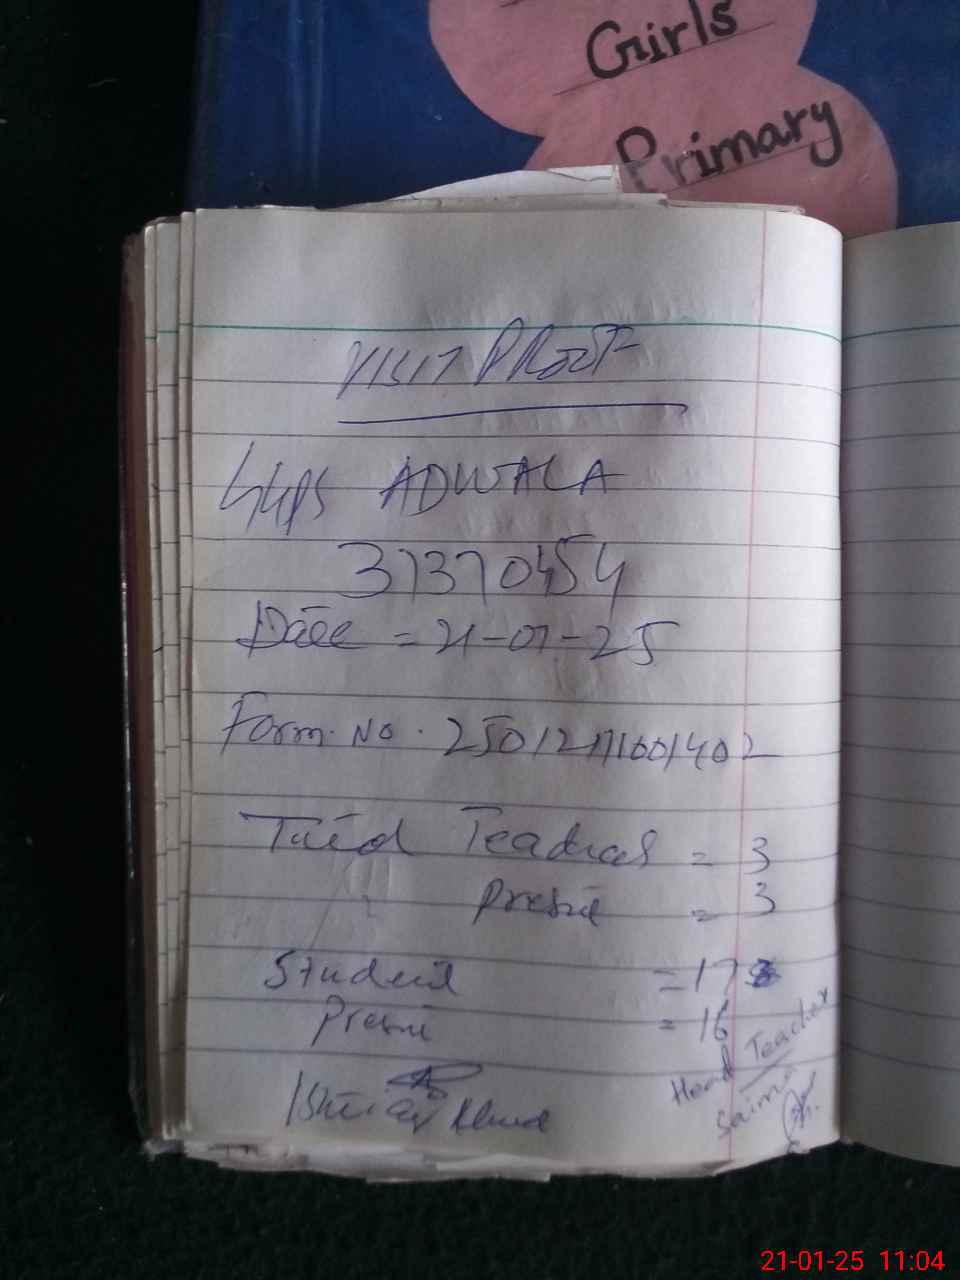 Girls
Primary
VISIT PROOF
GGPS ADWALA
37370454
Date = 21-01-25
Form. No. 25012171001402
Total Teachers = 3
Present = 3
Student = 17
Present = 16
Head Teacher
Saima
Khan
21-01-25 11:04